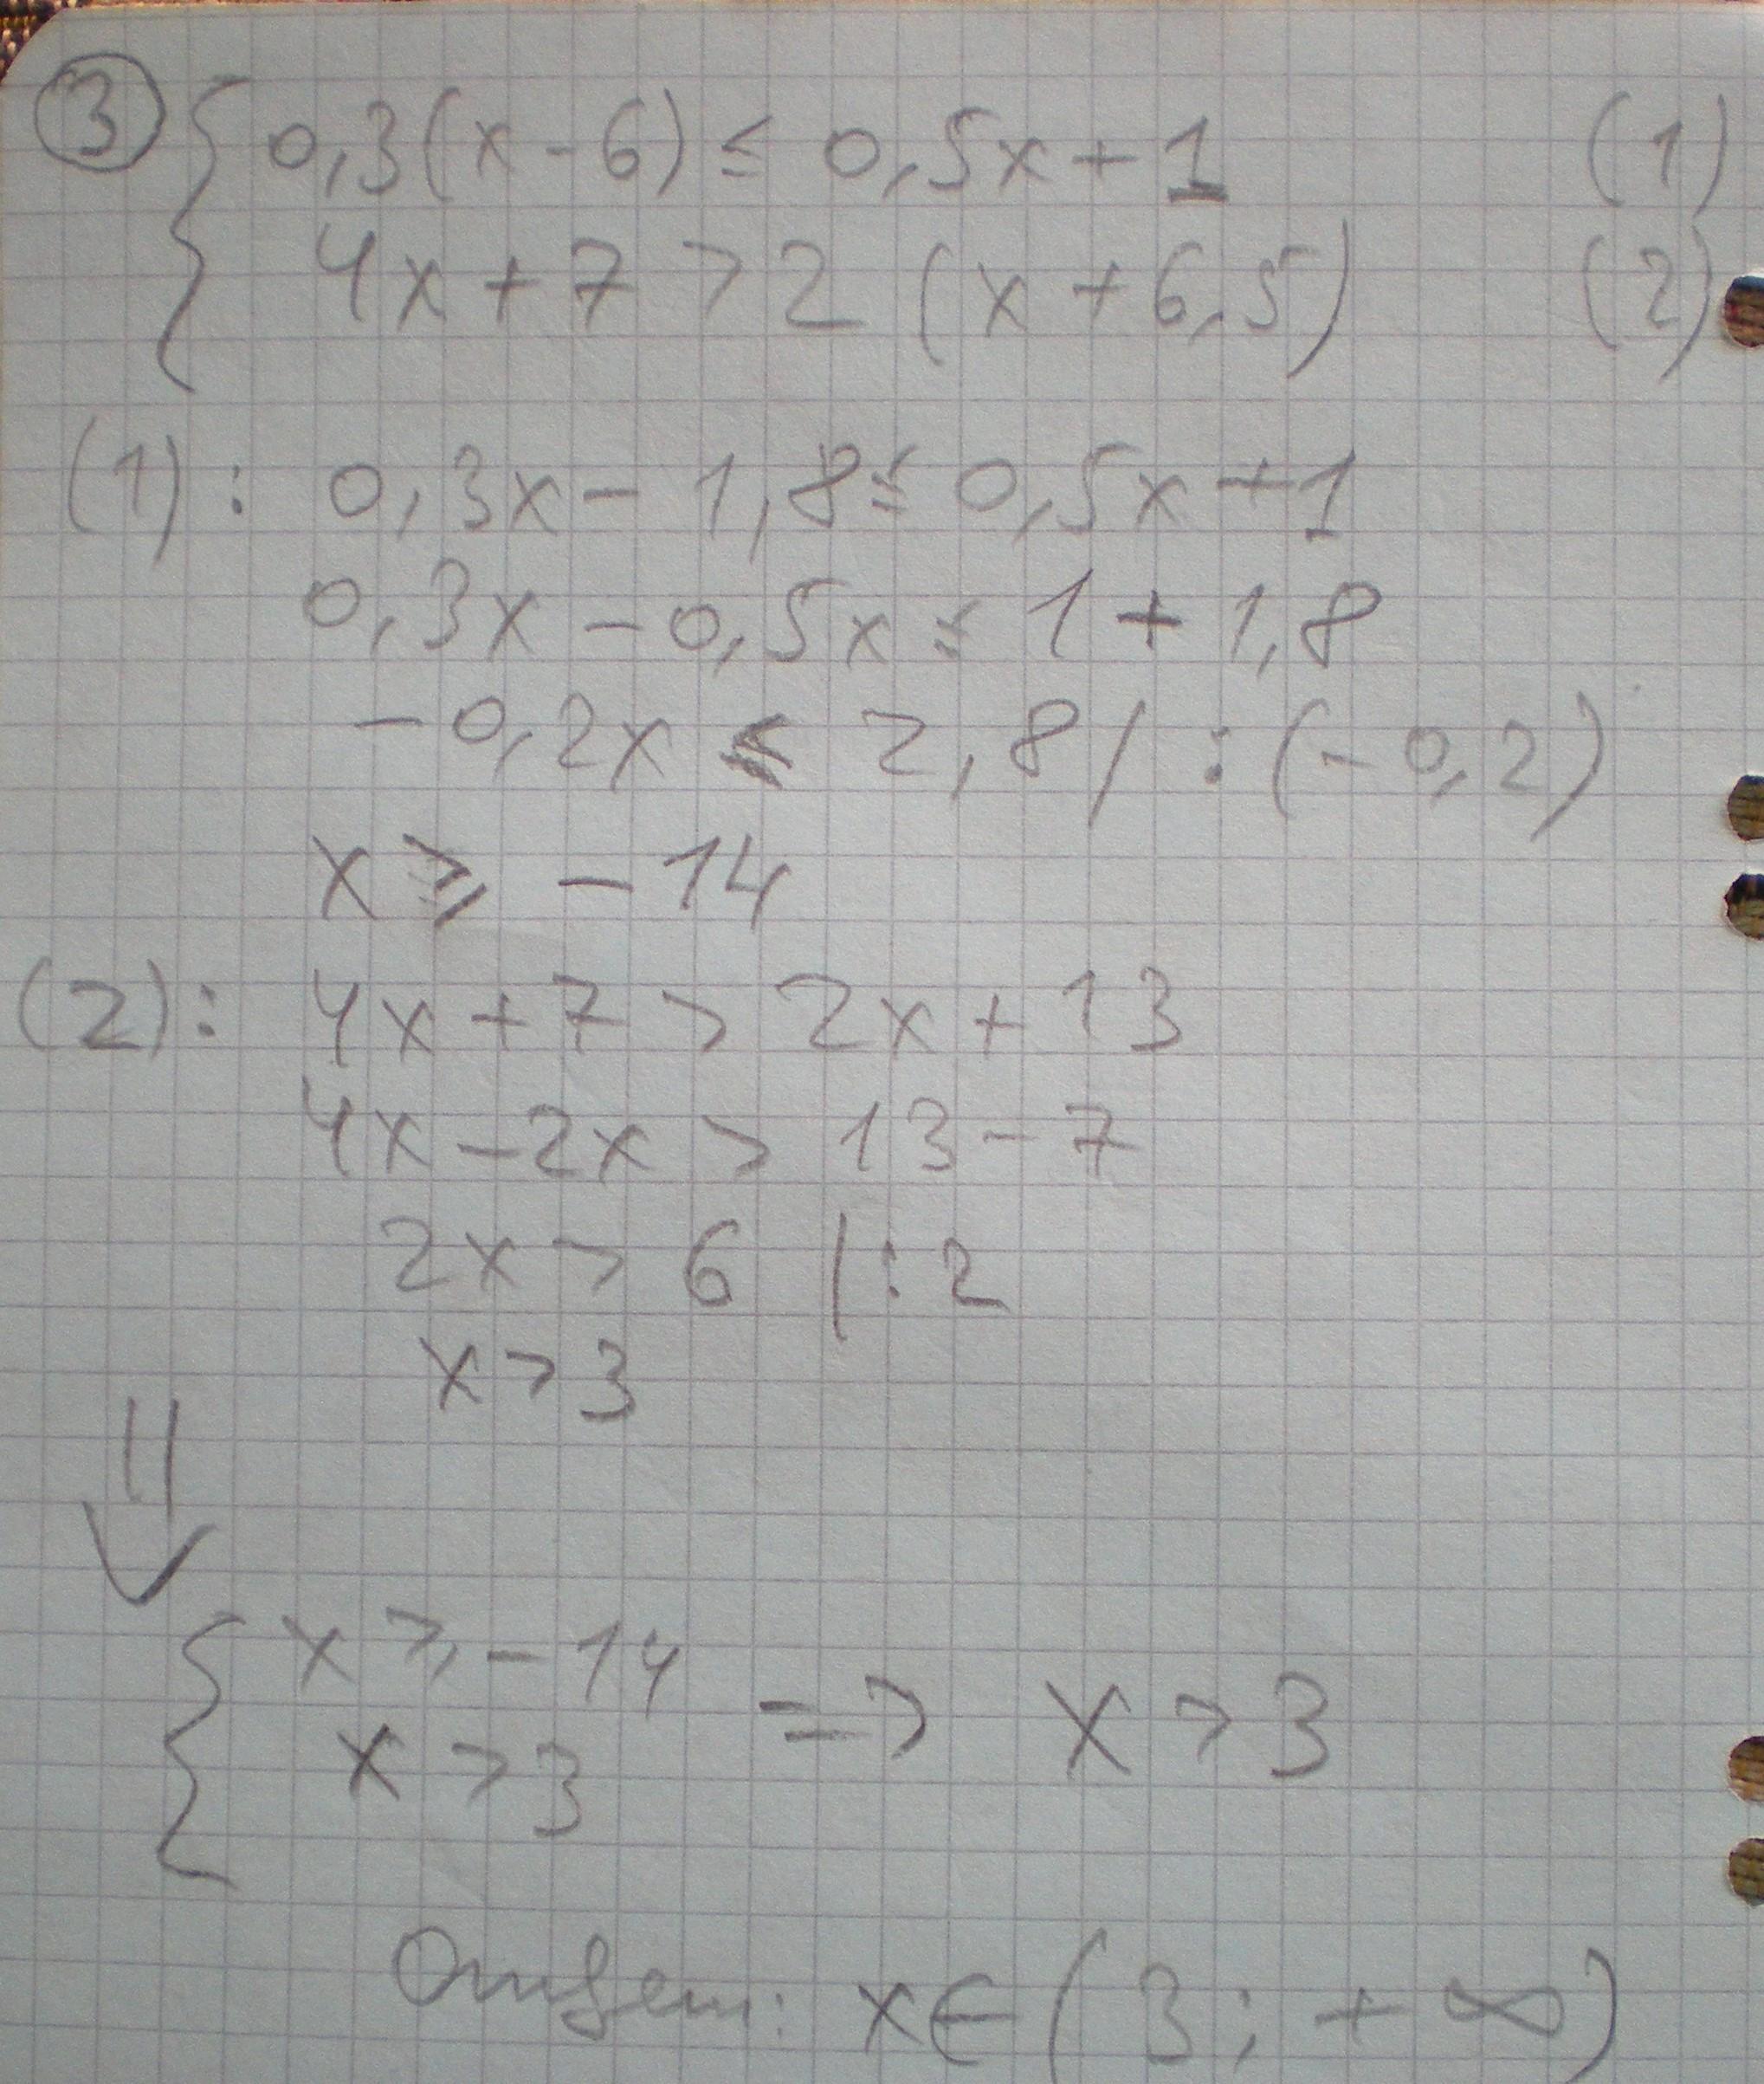 ③ { 0,3(x-6) ≤ 0,5x+1 (1)
4x+7 > 2 (x+6,5) (2)
(1): 0,3x-1,8 ≤ 0,5x+1
0,3x-0,5x ≤ 1+1,8
-0,2x ≤ 2,8 / : (-0,2)
x ⩾ -14
(2): 4x+7 > 2x+13
4x-2x > 13-7
2x > 6 | : 2
x > 3
⇓
{ x ⩾ -14
x > 3 => x > 3
Ответ: x∈(3; +∞)